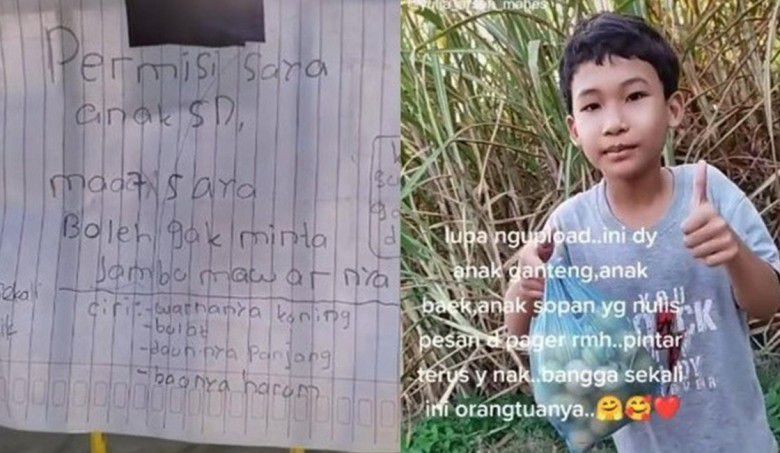 Permisi saya
anak SD,
maaf saya
Boleh gak minta
Jambu mawar nya
ciri:-warnanya kuning
-bulat
-daunnya panjang
-baunya harum
lupa ngupload..ini dy
anak ganteng,anak
baek,anak sopan yg nulis
pesan d pager rmh..pintar
terus y nak..bangga sekali
ini orangtuanya..🤗🥰❤️